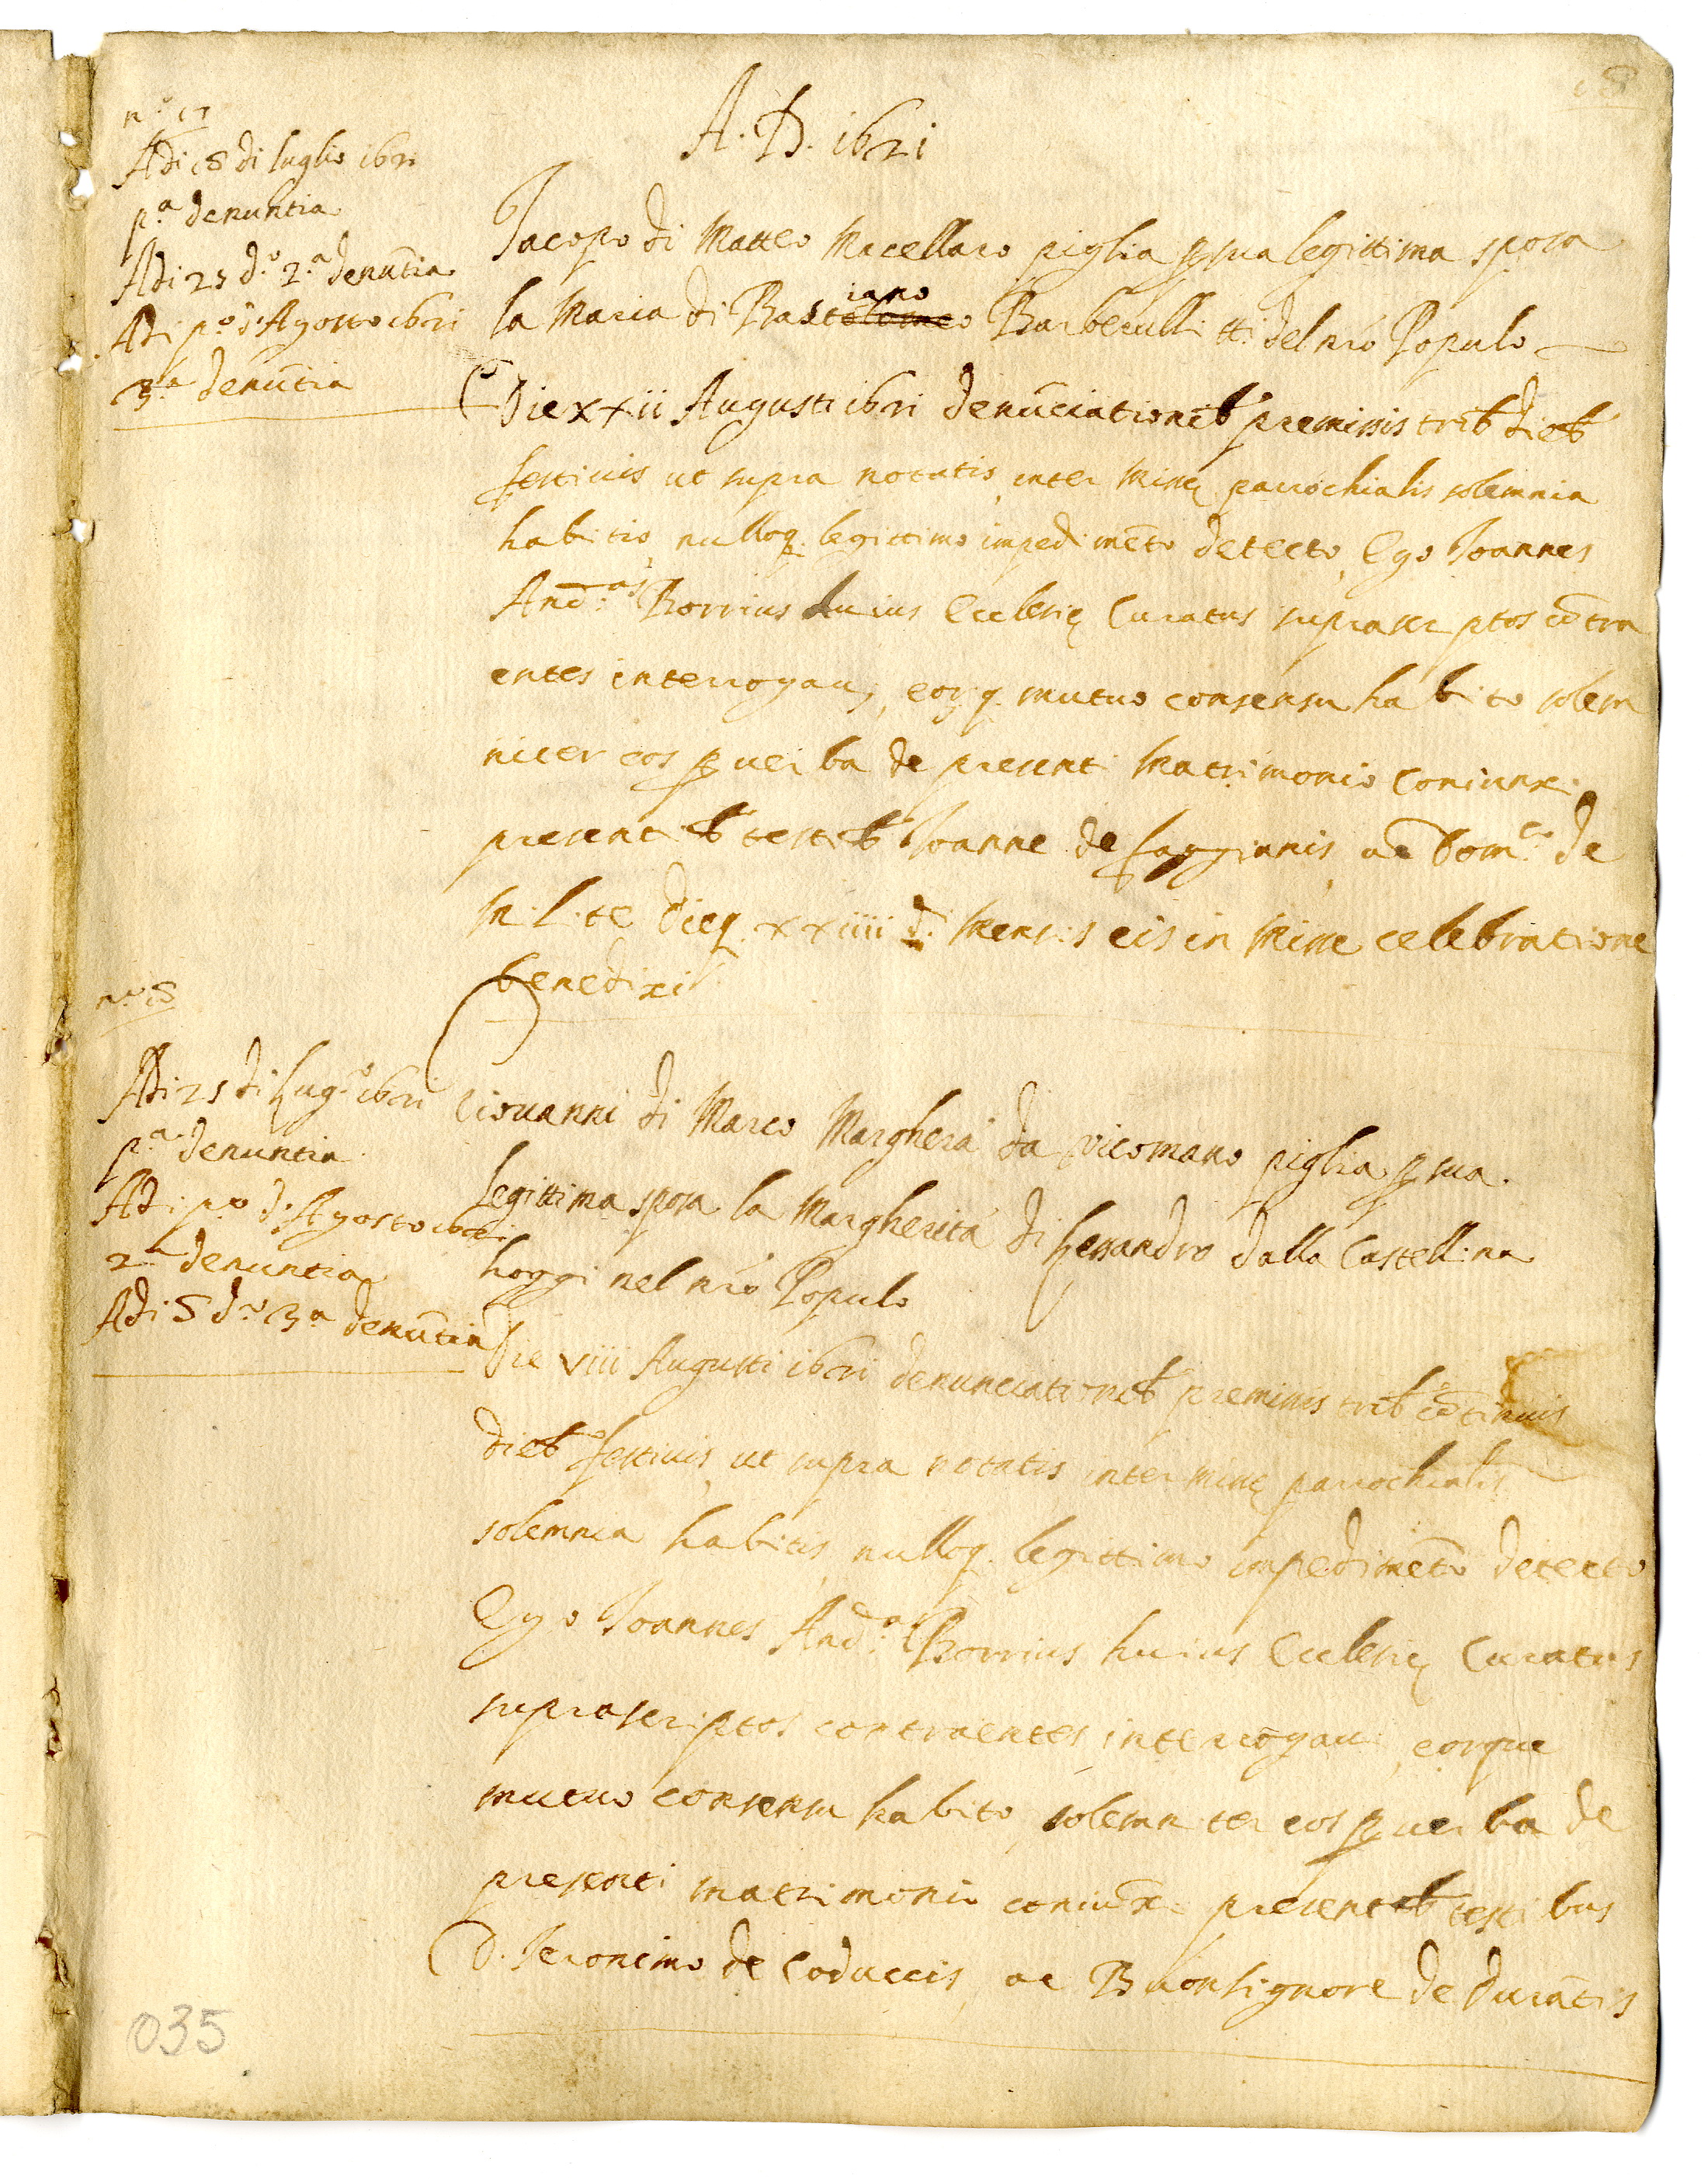 18
A. D. 1621
n.o 17
Adi 18 di luglio 1621
p.a denuntia
Adi 25 d.o 2.a denũtia
Adi p.o d'Agosto 1621
3.a denũtia
Jacopo di Matteo Macellaro piglia p sua legittima sposa
la Maria di Bastiano Barberulli tti del nrõ Populo
Die xxii Augusti 1621 denũciationib' premissis trib' dieb'
festivis ut supra notatis, inter Missę parrochialis solemnia
habitis, nulloq. legittimo impedimẽto detecto, Ego Joannes
And.as Borrius huius Ecclesię Curatus suprascriptos cõtra
entes interrogaui, eorq. mutuo consensu habito solem
niter eos p uerba de presenti Matrimonio Coniunxi
presentib' testib' Joanne de faggianis, ac Dom.co de
Mensis eis in Misse celebratione
benedixi
n.o 18
Adi 25 di Lug.o 1621
p.a denuntia
Adi p.o d'Agosto 1621
2.a denuntia
Adi 8 d.o 3.a denũtia
Giovanni di Marco Marghera da vicomano piglia p sua
legittima sposa la Margherita di Lessandro dalla Castellina
hoggi nel nrõ Populo
Die viii Augusti 1621 denunciationib' premissis trib' cõtinuis
dieb' festivis, ut supra notatis, inter Missę parrochialis
solemnia habitis, nulloq. legittimo impedimẽto detecto
Ego Joannes And.as Borrius huius Ecclesię Curatus
suprascriptos contraentes interrogaui, eorque
mutuo consensu habito, solemniter eos p uerba de
presenti matrimonio coniũxi presentib' testibus
D. Jeronimo de Coduccis, ac Buonsignore de Durãtis
035